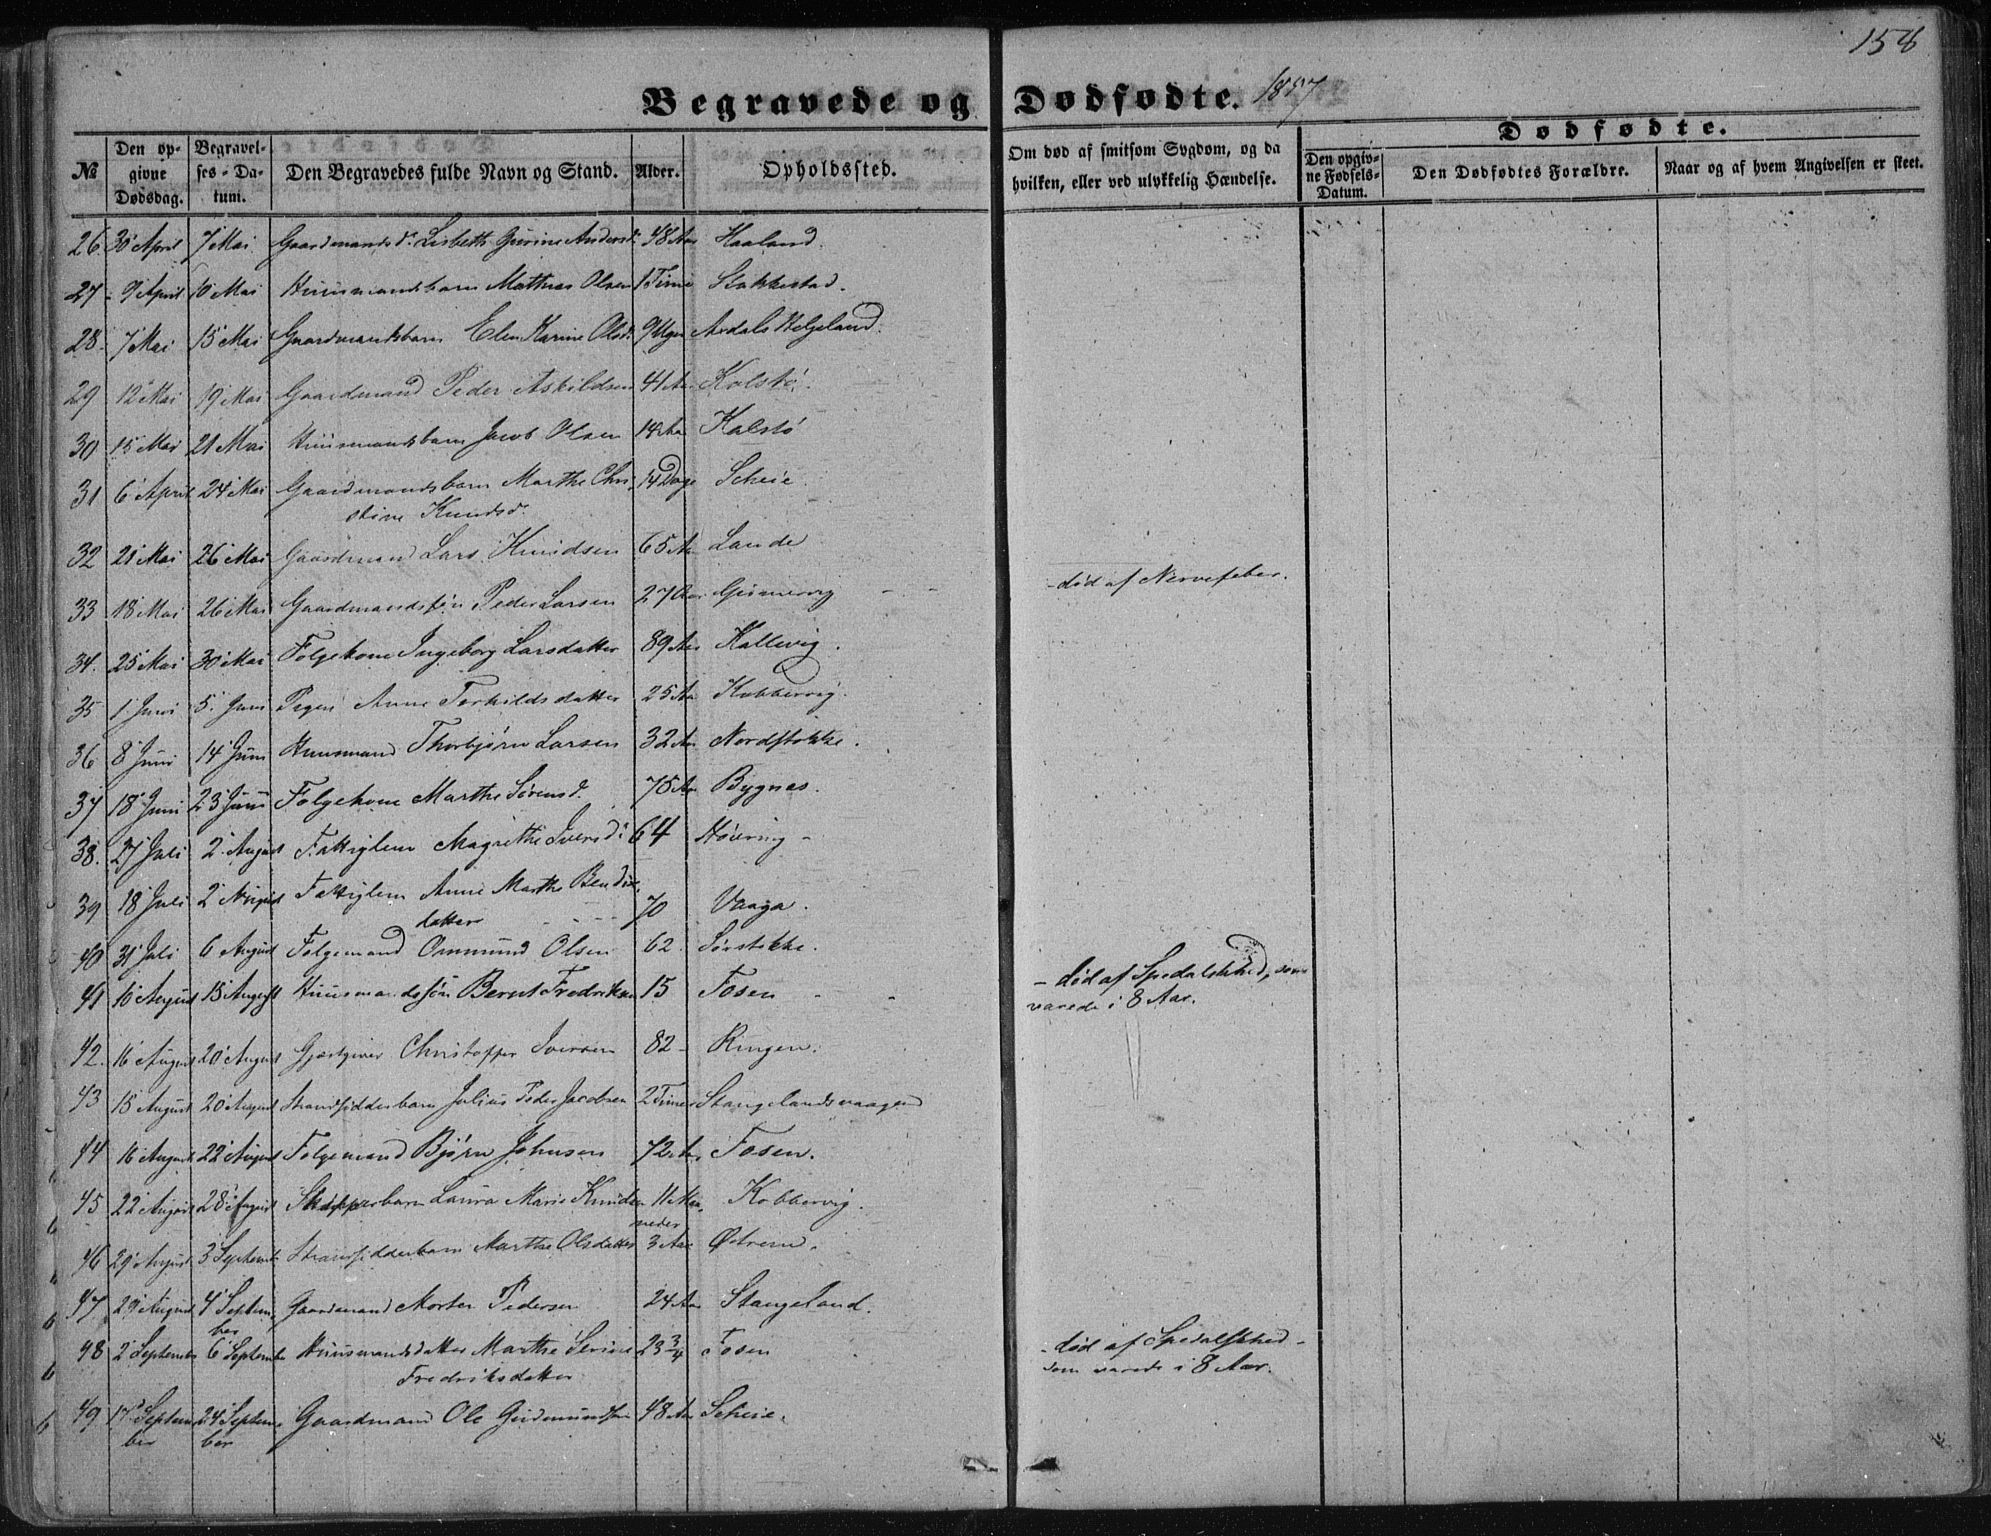 158
Begravede og Dødfødte. 1857
№ Den opgivne Dødsdag. Begravelses-Datum. Den Begravedes fulde Navn og Stand. Alder. Opholdssted. Om død af smitsom Sygdom, og da hvilken, eller ved ulykkelig Hændelse. Dødfødte. Den opgivne Fødsels-Datum. Den Dødfødtes Forældre. Naar og af hvem Angivelsen er skeet.
26. 30 April 7 Mai Gaardmandsd. Lisbeth Gurine Andersd. 48 Aar Haaland.
27 9 April 10 Mai Huusmandsbarn Mathias Olsen 1 Time Stokkestad.
28. 7 Mai 15 Mai Gaardmandsbarn Elen Karine Olsd. 9 Uger Avdals Helgeland.
29 12 Mai 19 Mai Gaardmand Peder Askildsen 41 Aar Kolstø.
30 15 Mai 21 Mai Huusmandsbarn Jacob Olsen 14 Aar Kalstø
31 6 April 24 Mai Gaardmandsbarn Marthe Chri- 14 Dage Scheie.
stine Knudsd.
32 21 Mai 26 Mai Gaardmand Lars Knudsen 65 Aar Lande
33 18 Mai 26 Mai Gaardmandssøn Peder Larsen 27 Aar - død af Nervefeber.
34. 25 Mai 30 Mai Følgekone Ingeborg Larsdatter 89 Aar Kallevig.
35 1 Juni 5. Juni Pigen Anne Torkildsdatter 25 Aar Kobbervig.
36 8 Juni 14 Juni Huusmand Thorbjørn Larsen 32 Aar Nordstokke.
37 18 Juni 23 Juni Følgekone Marthe Sørensd. 75 Aar Bygnes.
38. 27 Juli 2. August Fattiglem Magrethe Iversd: 64 Høievig -
39 18 Juli 2 August Fattiglem Anne Marthe Bendix-
datter 70 Vaaga.
40 31 Juli 6 August Følgemand Ommund Olsen 62. Sørstokke.
41 10 August 15 August Huusmandssøn Bernt Fredriksen 15 Fosen - - - død af Spedalskhed, som
varede i 8 Aar.
42. 16 August 20 August Gjæstgiver Christopher Iversen 82 - Ringen.
43 15 August 20 August Strandsidderbarn Julius Peder Jacobsen 2 Timer Stangelandsvaagen
44 16 August 22 August Følgemand Bjørn Johnsen 72 Aar Fosen.
45 22 August 28 August Skipperbarn Laura Marie Knudsen 11 Maa-
neder Kobbervig.
46 29 August 3 Septemb. Strandsidderbarn Marthe Olsdatter 3 Aar Østrem.
47. 29 August 4 Septem-
ber Gaardmand Morten Pedersen 24 Aar Stangeland.
48 2 September 6 September Huusmandsdatter Marthe Serine 23 3/4 Fosen - død af Spedalskhed -
Fredriksdatter som varede i 8 Aar.
49 17 Septem- 24 Septem- Gaardmand Ole Gudmundsen 48 Aar Scheie.
ber ber